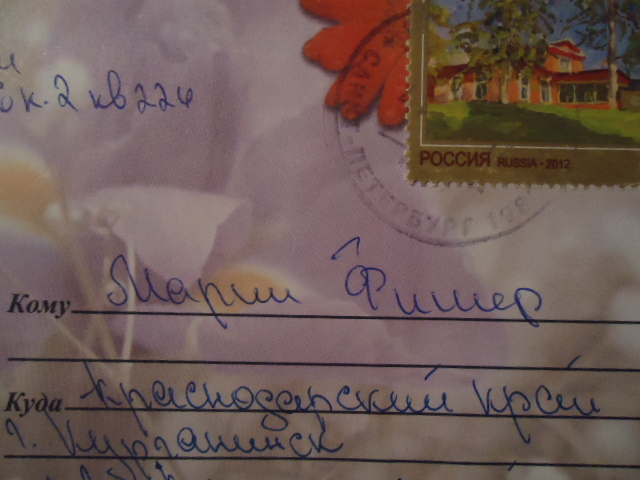 к. 2 кв 226
САНКТ-ПЕТЕРБУРГ 198
РОССИЯ RUSSIA • 2012
Кому Марии Фишер
Куда Краснодарский край
г. Курганинск